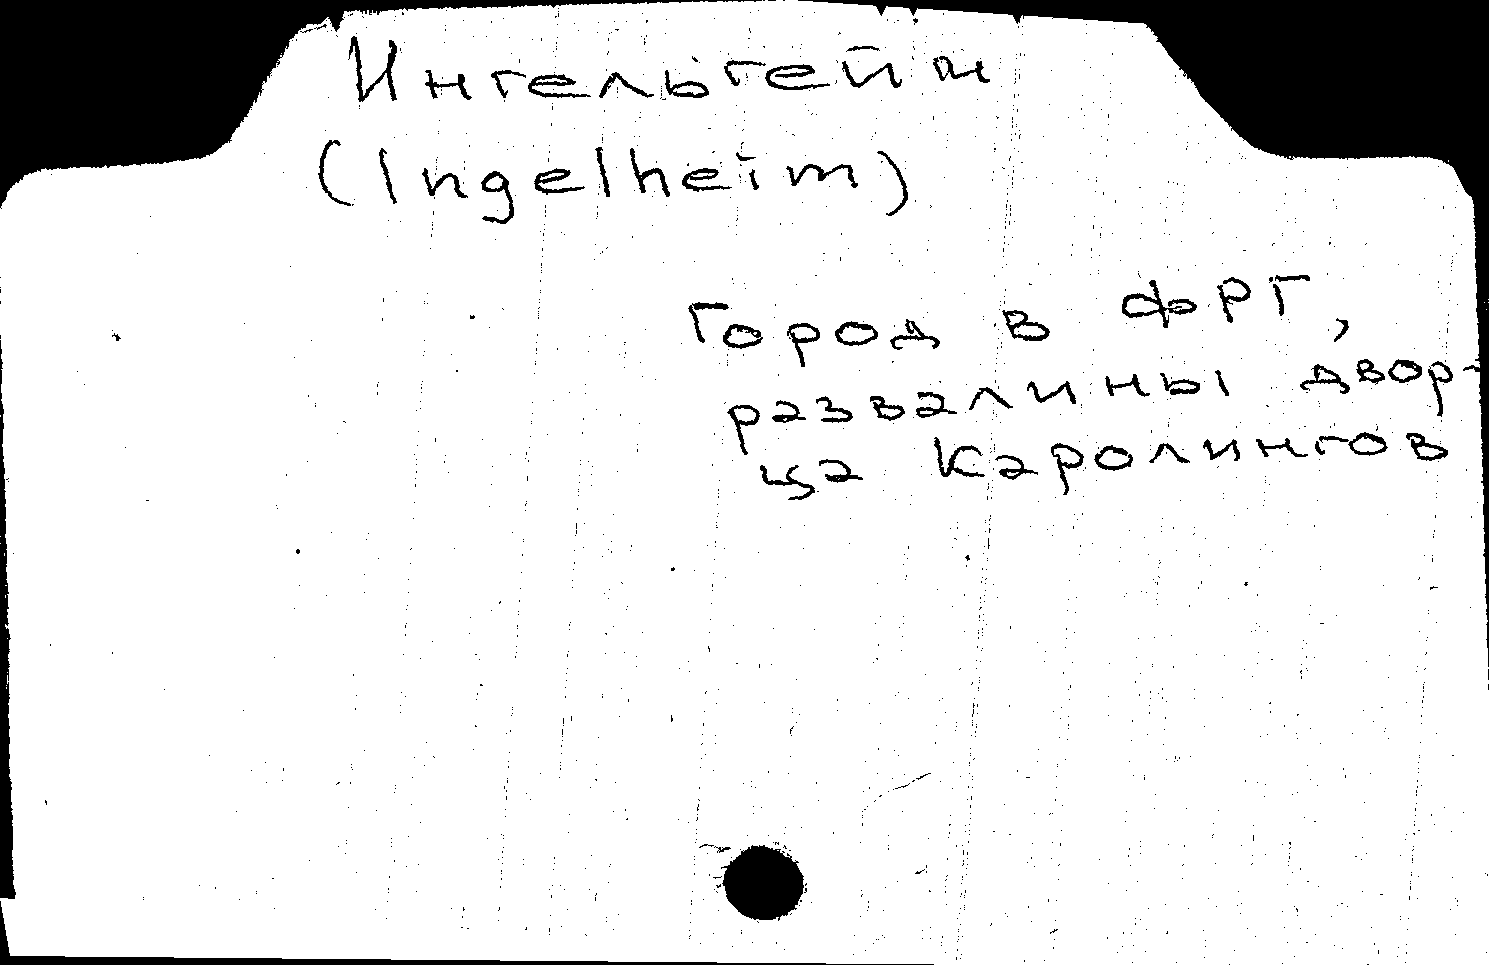 Ингельгейм
(Ingelheim)
Город в ФРГ,
развалины двор-
ца Каролингов